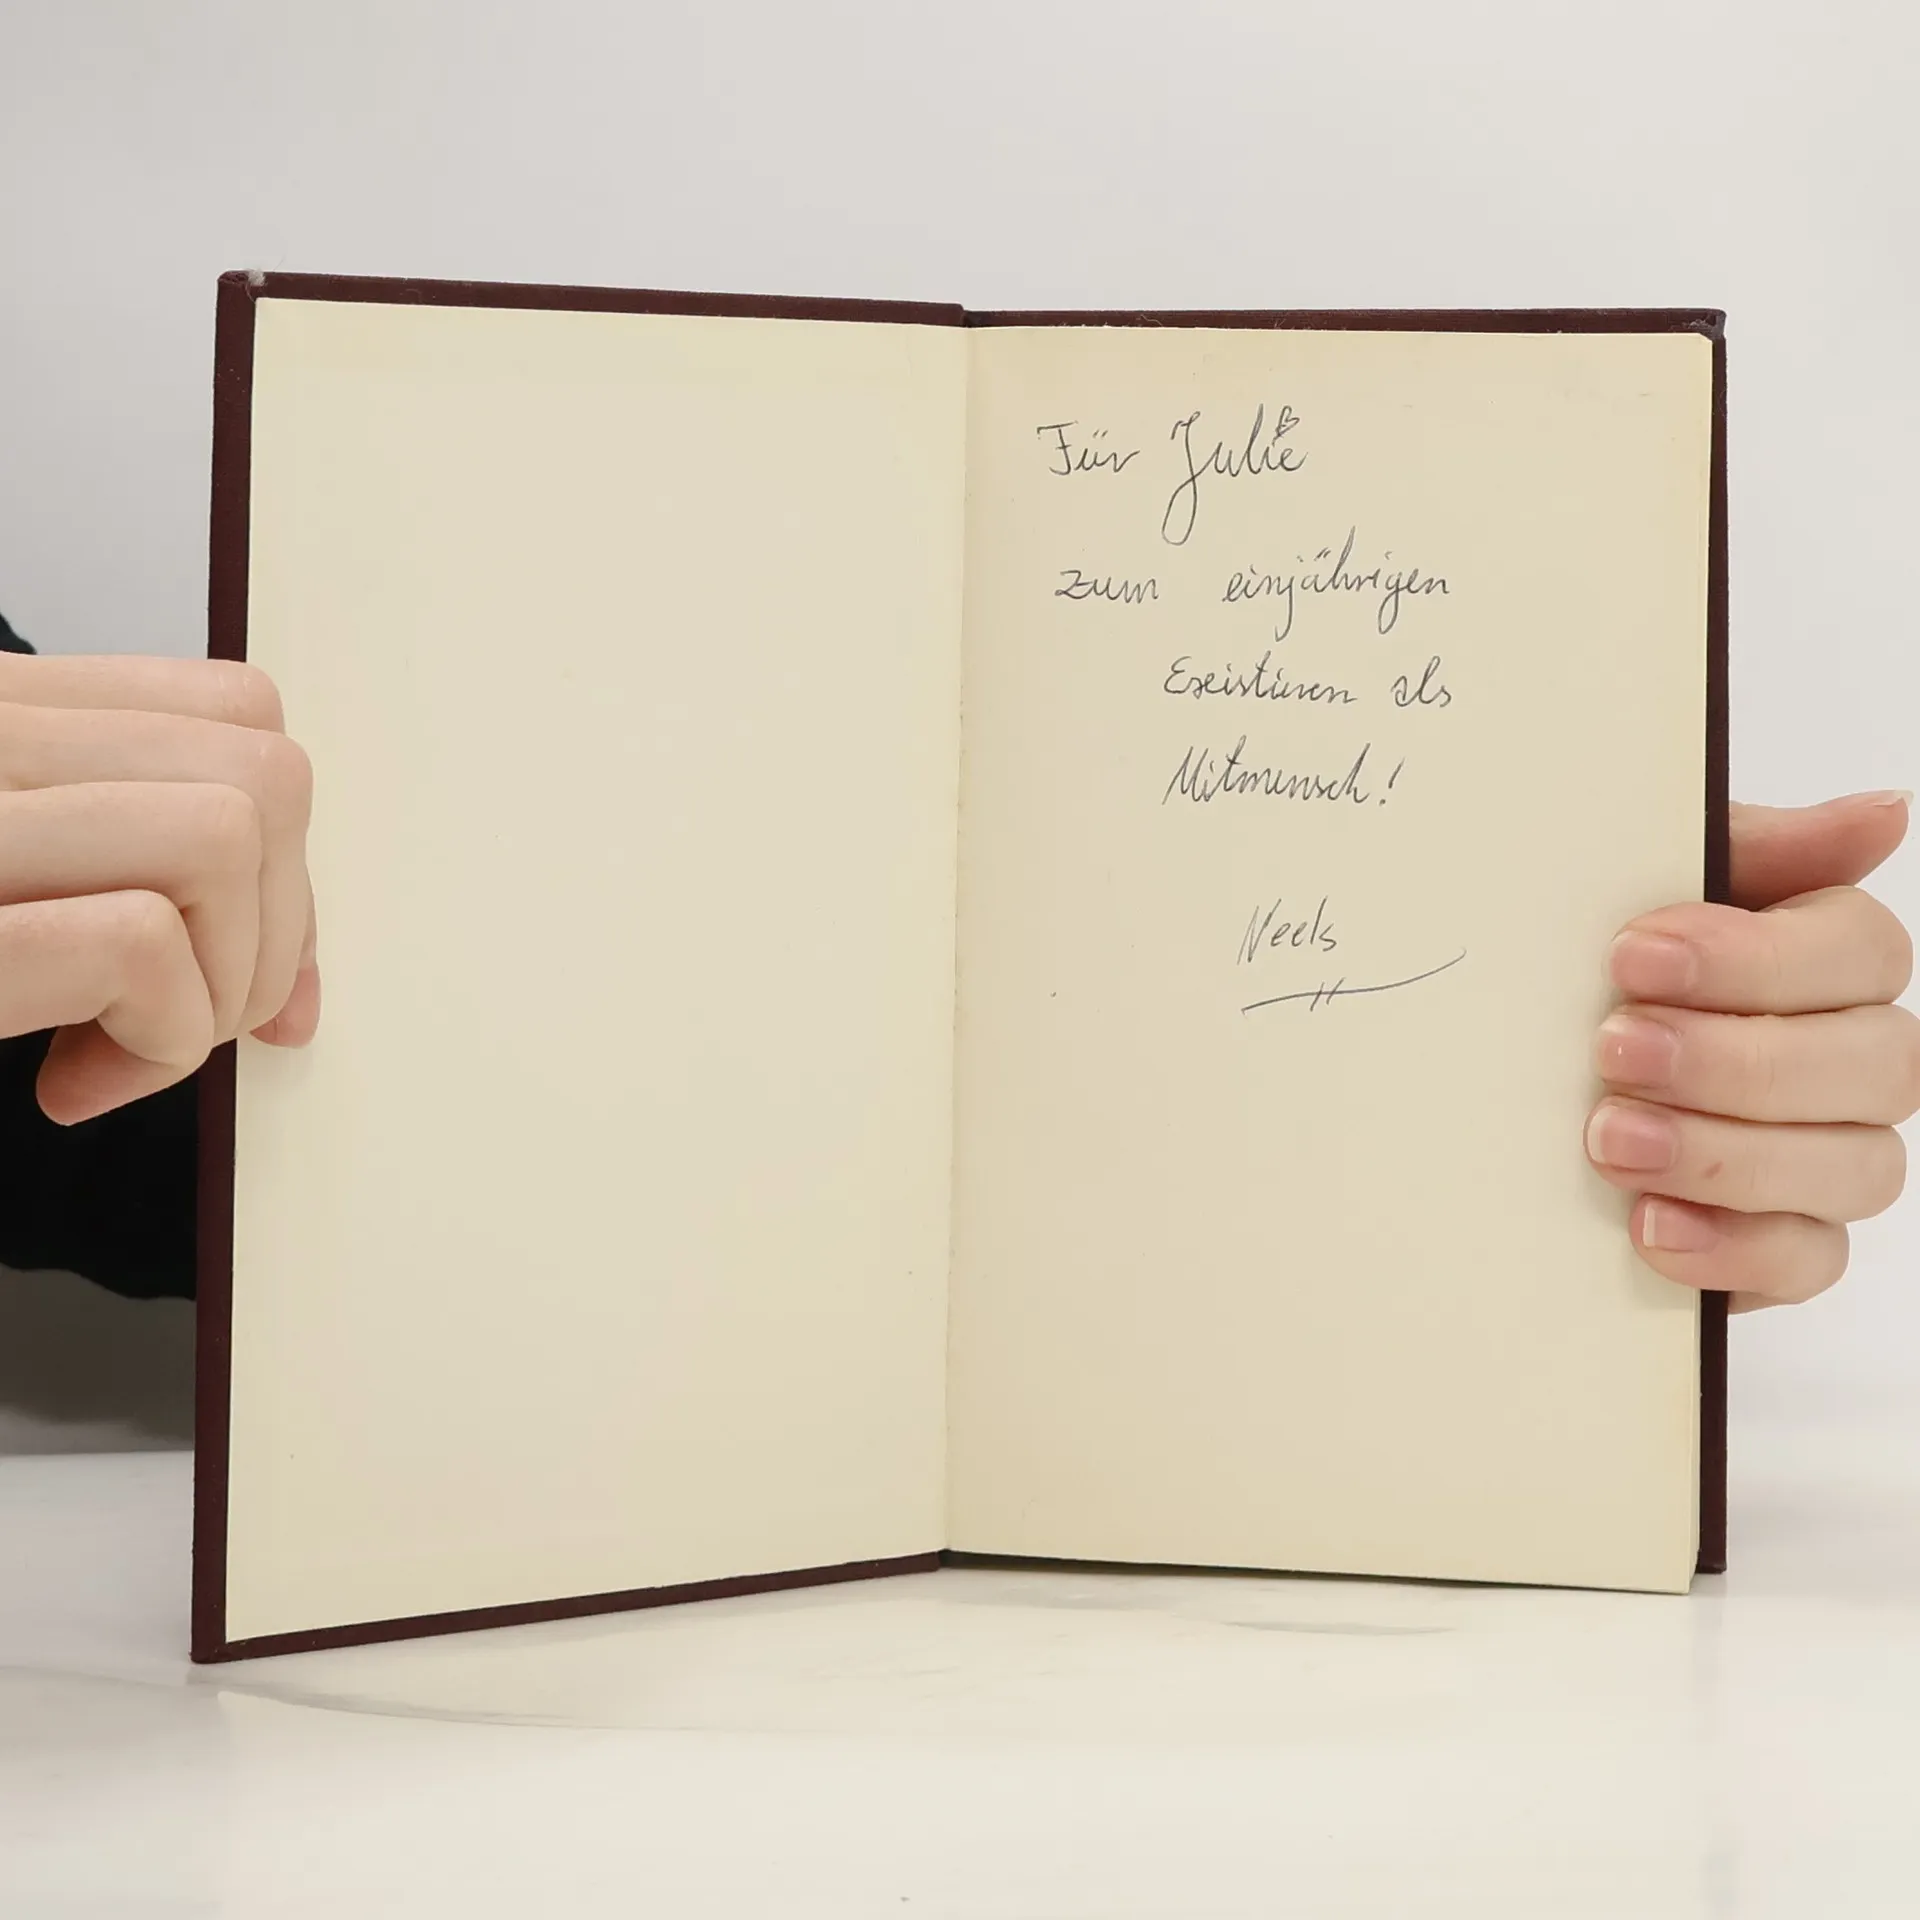 Für Julie
zum einjährigen
Existieren als
Mitmensch!
Neels